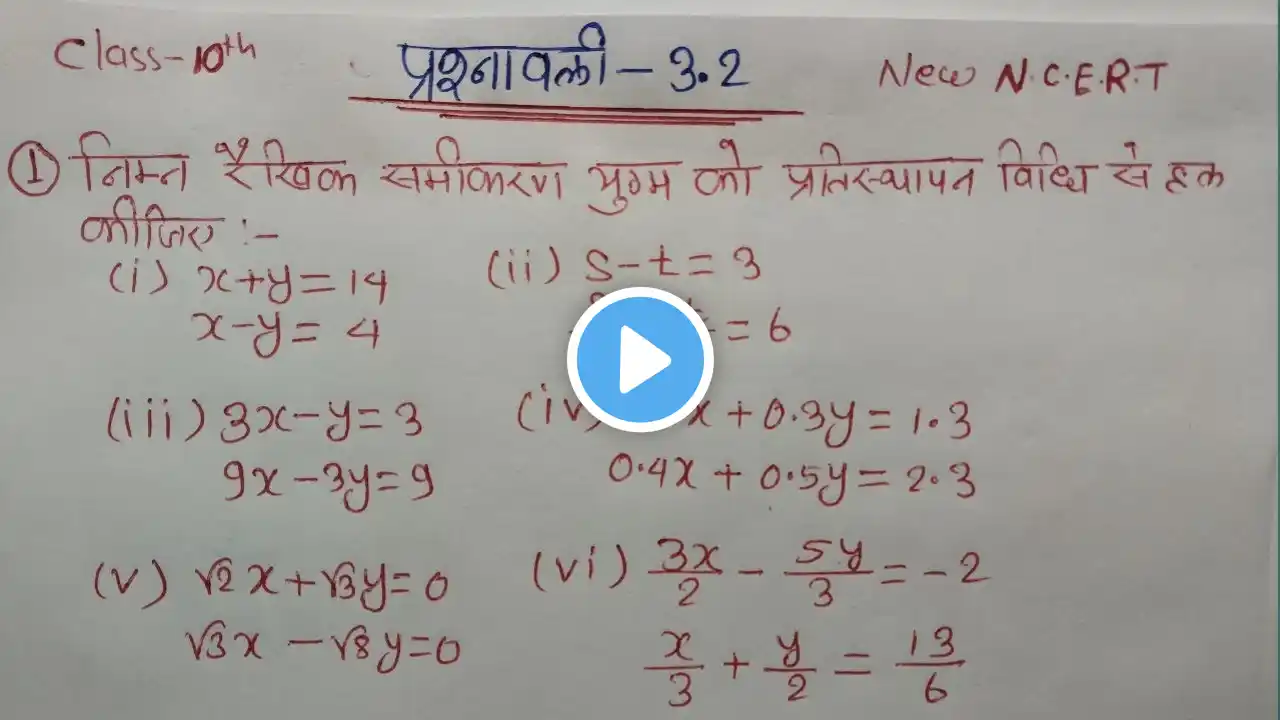 Class-10th
प्रश्नावली-3.2
New N.C.E.R.T
① निम्न रैखिक समीकरण युग्म को प्रतिस्थापन विधि से हल
कीजिए :-
(i) x+y=14
x-y=4
(ii) s-t=3
=6
(iii) 3x-y=3
9x-3y=9
(iv) x+0.3y=1.3
0.4x+0.5y=2.3
(v) √2x+√3y=0
√3x-√8y=0
(vi) 3x/2 - 5y/3 = -2
x/3 + y/2 = 13/6